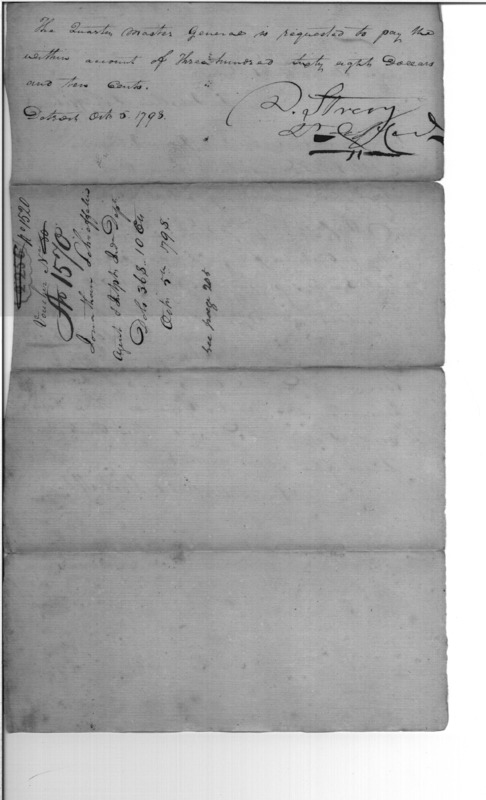 The Quarter Master General is requested to pay the
within account of Three hundred sixty eight Dollars
and ten Cents.
Detroit Oct 5 1798.
D. Strong
No 1520
Voucher No
No 1570
Jonathan Schieffelin
Agent
Dols 368.10 Cts
Oct 5th 1798.
See page 208